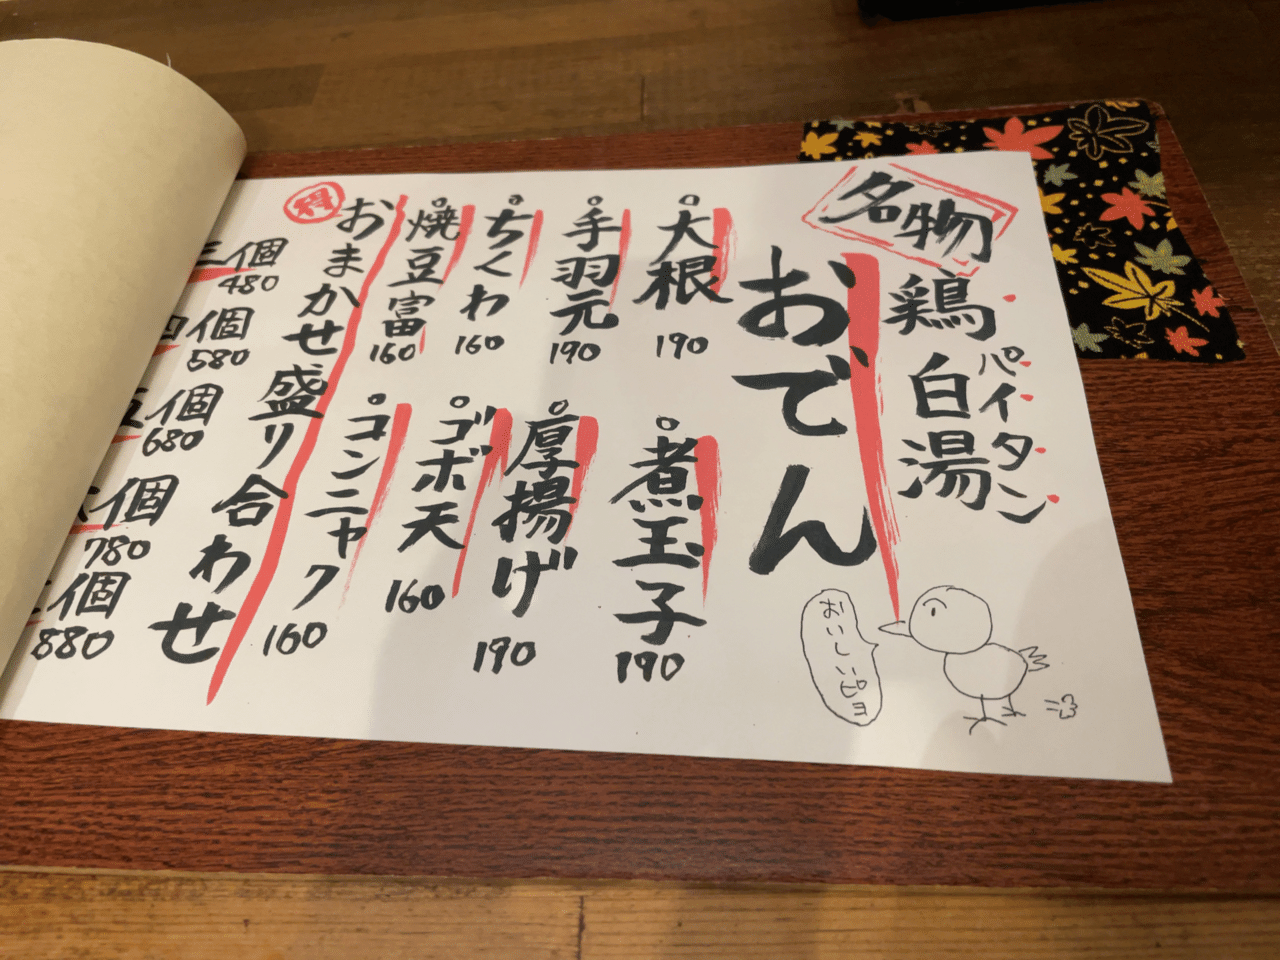 名物
鶏白湯
パイタン
おでん
大根 190
煮玉子 190
手羽元 190
厚揚げ 190
ちくわ 160
ゴボ天 160
焼豆富 160
コンニャク 160
得
おまかせ盛り合わせ
三個 480
個 580
五個 680
個 780
個 880
おいしいピヨ